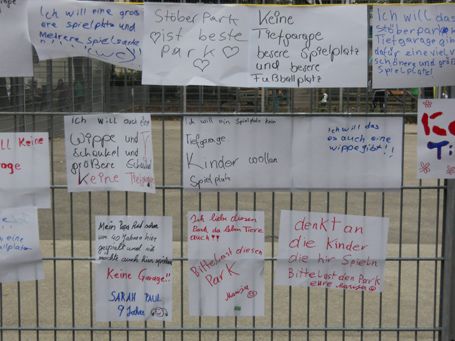 Ich will eine gros
ere spielplatz und
Mehrere spielsache
StöberPark
ist beste
Park
Keine
Tiefgarage
besere Spielplatz
und besere
Fußballplatz
Ich will das
stöberpark
Tiefgarage
dafür eine viel
schönere und
Spielplatz
ll Keine
rage
Ich will auch
Wippe und
Schaukel und
größere
Keine Tiefgarage
Ich will ein Spielplatz kein
Tiefgarage
Kinder wollen
Spielplatz
Ich will das
es auch eine
wippe gibt!!
Ke
Ti
eine
platz
Mein Papa
vor 40 Jahren hier
gespielt und ich
möchte auch hier spielen
Keine Garage!!
SARAH PAUL
9 Jahre
Ich liebe diesen
Park da leben Tiere
auch!!!
Bitte Last diesen
Park
denkt an
die Kinder
die hir Spieln
Bitte Last den Park
eure